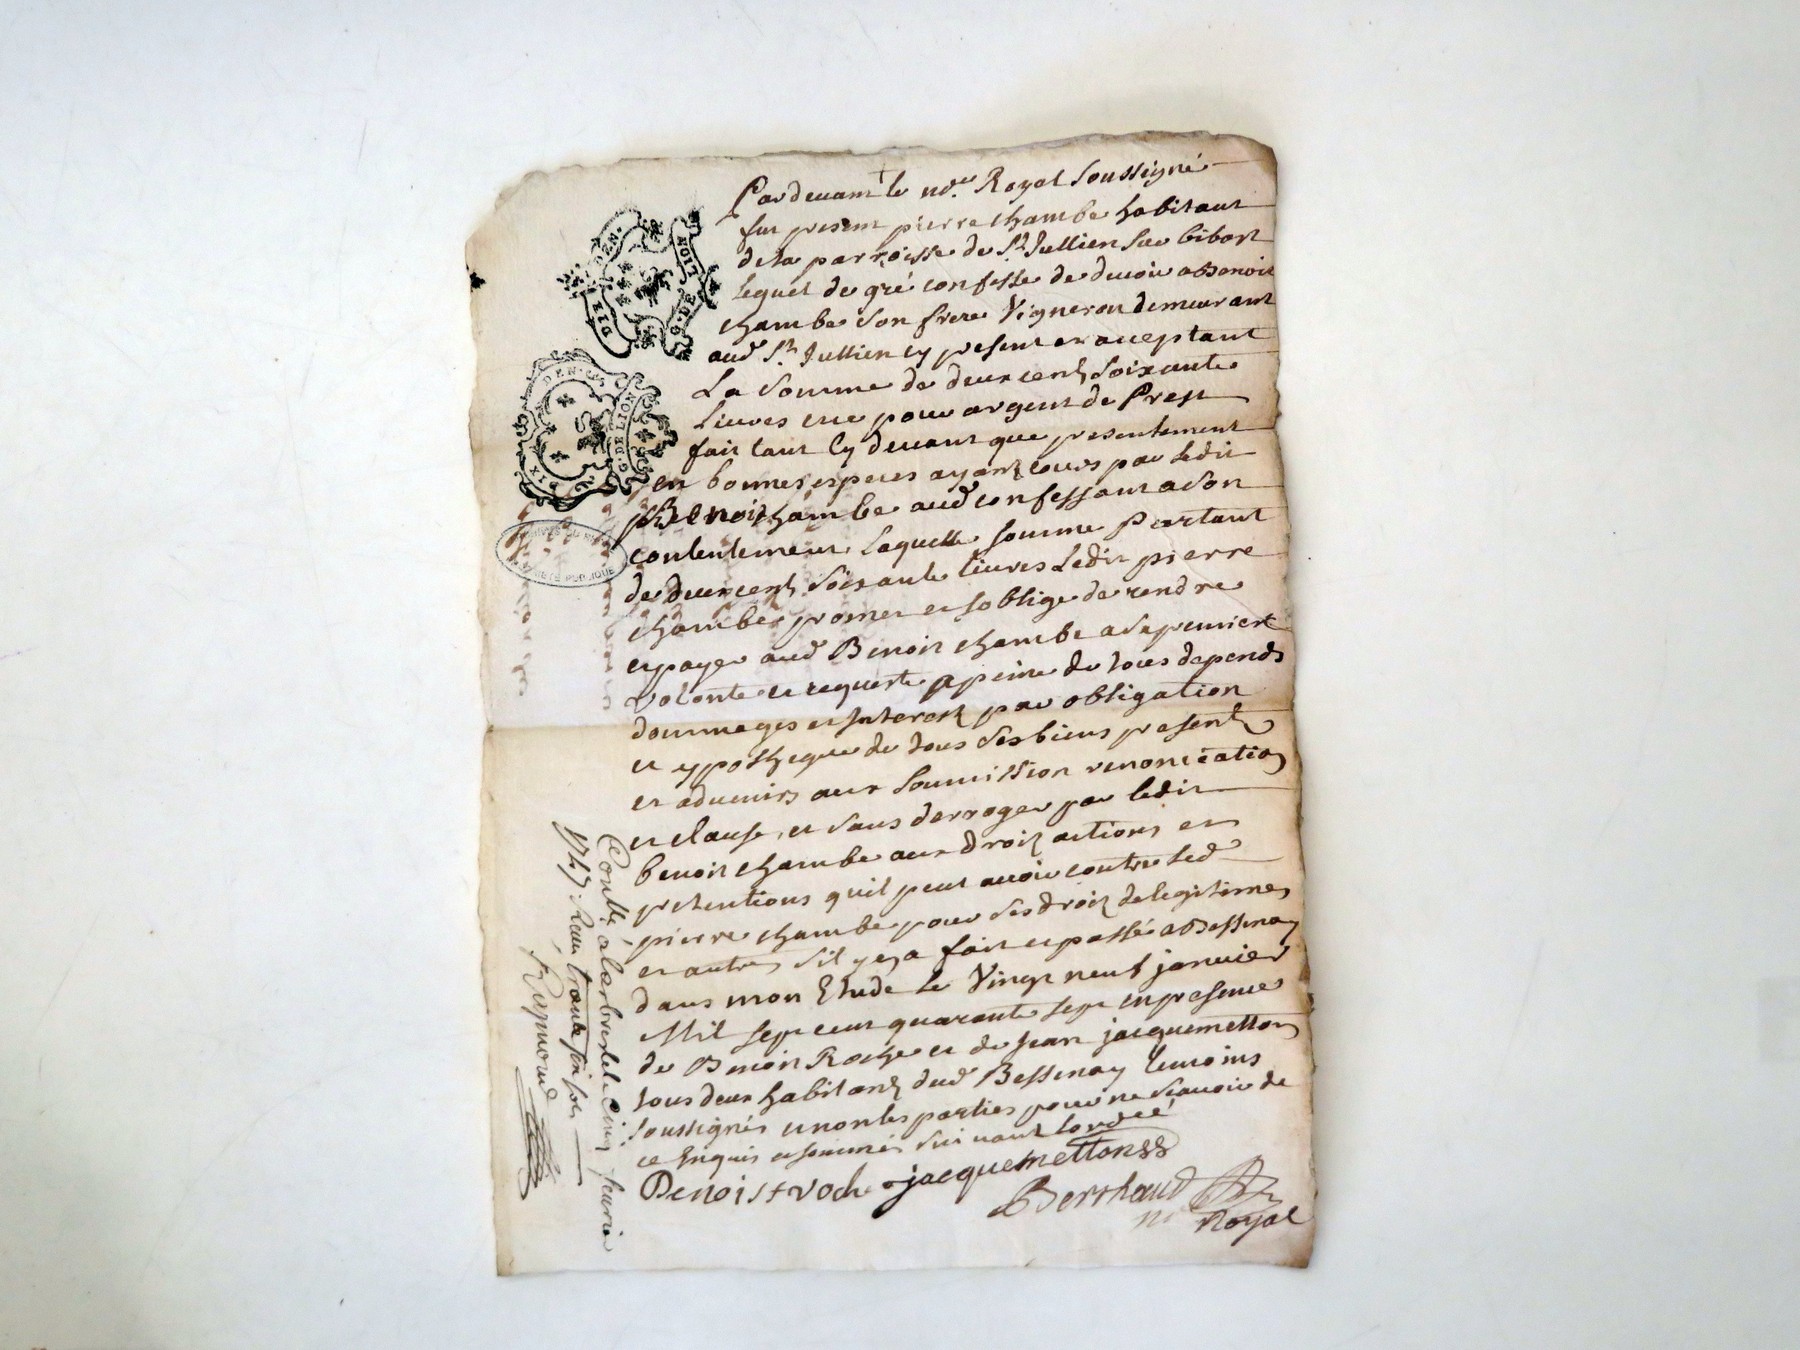 Pardeuant le no.re Royal soussigné
fut present pierre chambe habitant
de la parroisse de St Jullien sur bibost
lequel de gré confesse de deuoir a Benoit
chambe son frere Vigneron demeurant
aud St Jullien cy present et acceptant
La somme de deux cent soixante
Liures et ce pour argent de Prest
fait tant Cy deuant que presentement
en bonnes especes ayant cours par ledit
Benoit chambe aud confessant a son
contentement Laquelle somme Partant
de deux cent soixante liures Ledit pierre
chambe promet et soblige de rendre
et payer aud Benoit chambe a sa premiere
volonte et requeste a peine de tous depends
dommages et Interest par obligation
et ypotheque de tous ses biens present
et aduenirs aux soumission renonciation
et clause, et sans derroger par ledit
benoit chambe aux droit actions et
pretentions quil peut auoir contre led
pierre chambe pour ses droit de legitimes
et autres sil y en a fait et passé a Bessenay
dans mon Etude le Vingt neuf januier
Mil sept cent quarante sept en presence
de Benoit Roche et de Jean jacquemetton
tous deux habitant dud Bessenay temoins
soussignés et non les parties pour ne scauoir de
ce Enquis et sommés suiuant lordce
Benoist roche jacquemetton
Berthaud
no Royal
Conllé a larbresle le Cinq feurier
1747. Receu trante six sols
Reymond
DIX DEN.
G. DE LION
DIX DEN.
G. DE LION
PUBLIQUE